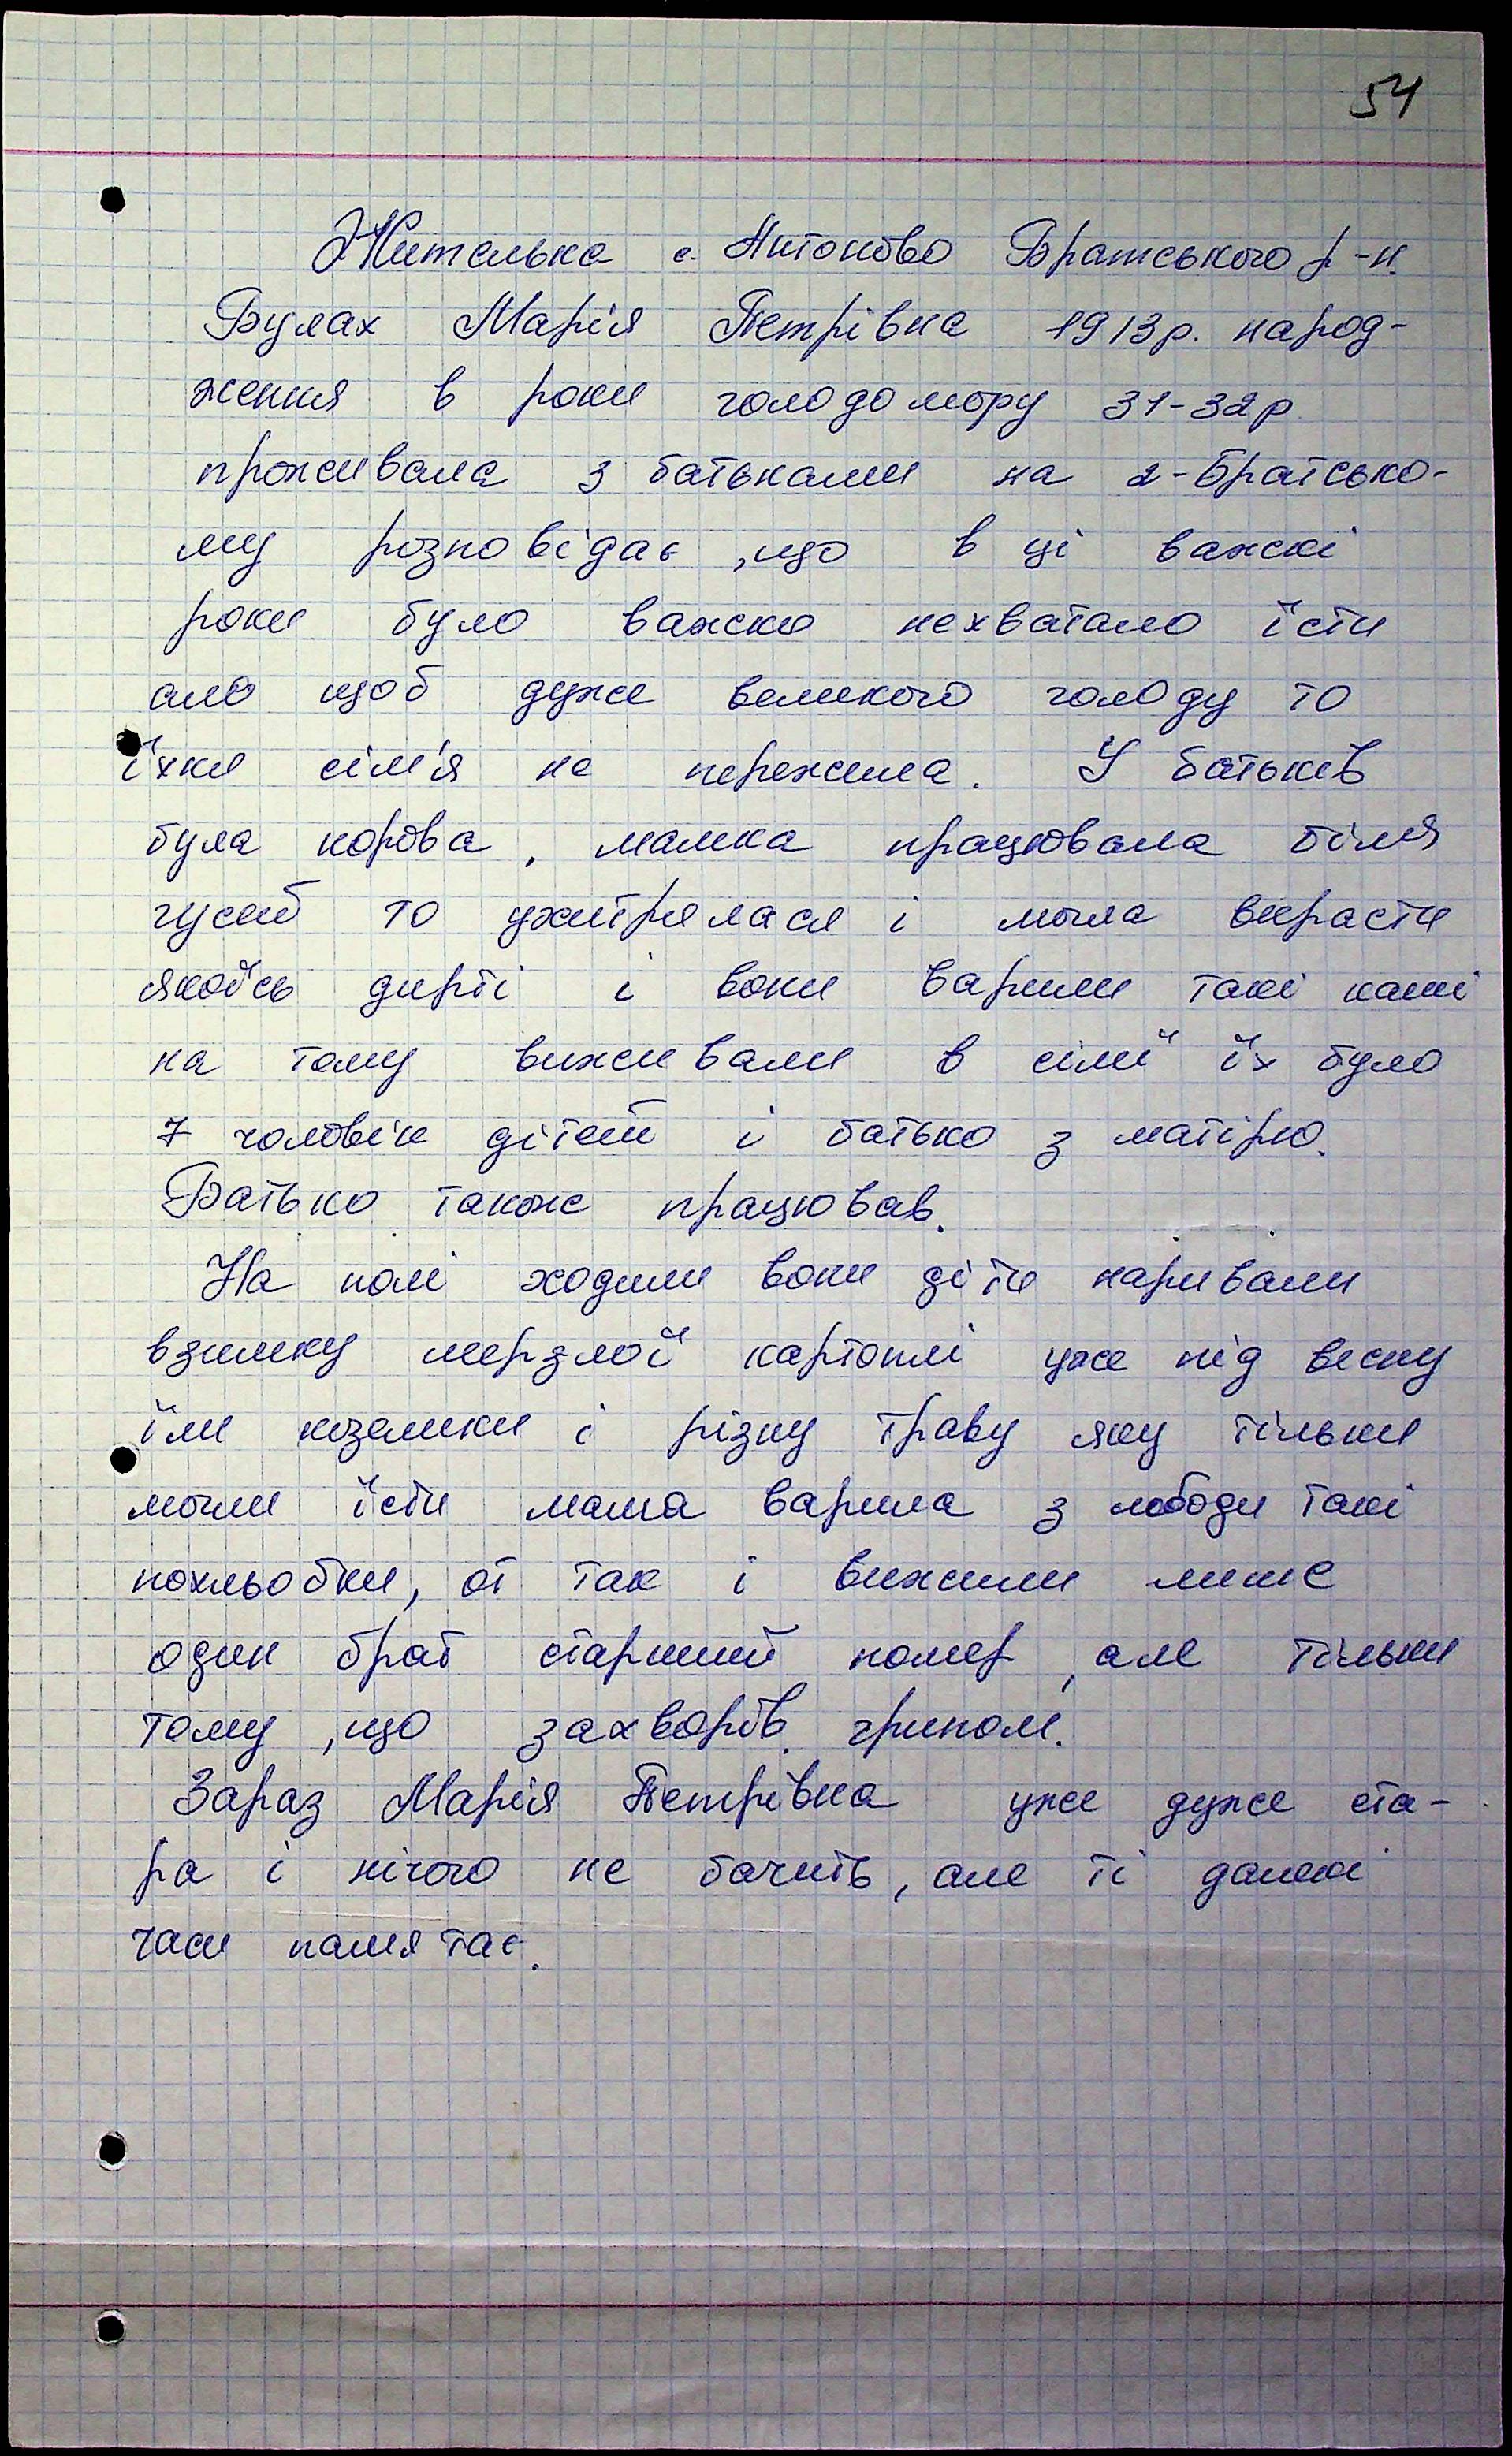 54
Жителька с. Антоново Братського р-н.
Булах Марія Петрівна 1913р. народ-
ження в роки голодомору 31-32р
проживала з батьками на 2-Братсько-
му розповідає, що в ці важкі
роки було важко нехватало їсти
але щоб дуже великого голоду то
їхня сім'я не пережила. У батьків
була корова, мамка працювала біля
гусей то ухитрялася і могла вкрасти
якоїсь дирті і вони варили такі каші
на тому виживали в сімї їх було
7 чоловік дітей і батько з матірю.
Батько також працював.
На полі ходили вони діти наривали
взимку мерзлої картоплі уже під весну
їли козелики і різну траву яку тільки
могли їсти мама варила з лободи такі
похльобки, от так і вижили лише
один брат старший помер, але тільки
тому, що захворів грипом.
Зараз Марія Петрівна уже дуже ста-
ра і нічого не бачить, але ті далекі
часи памятає.